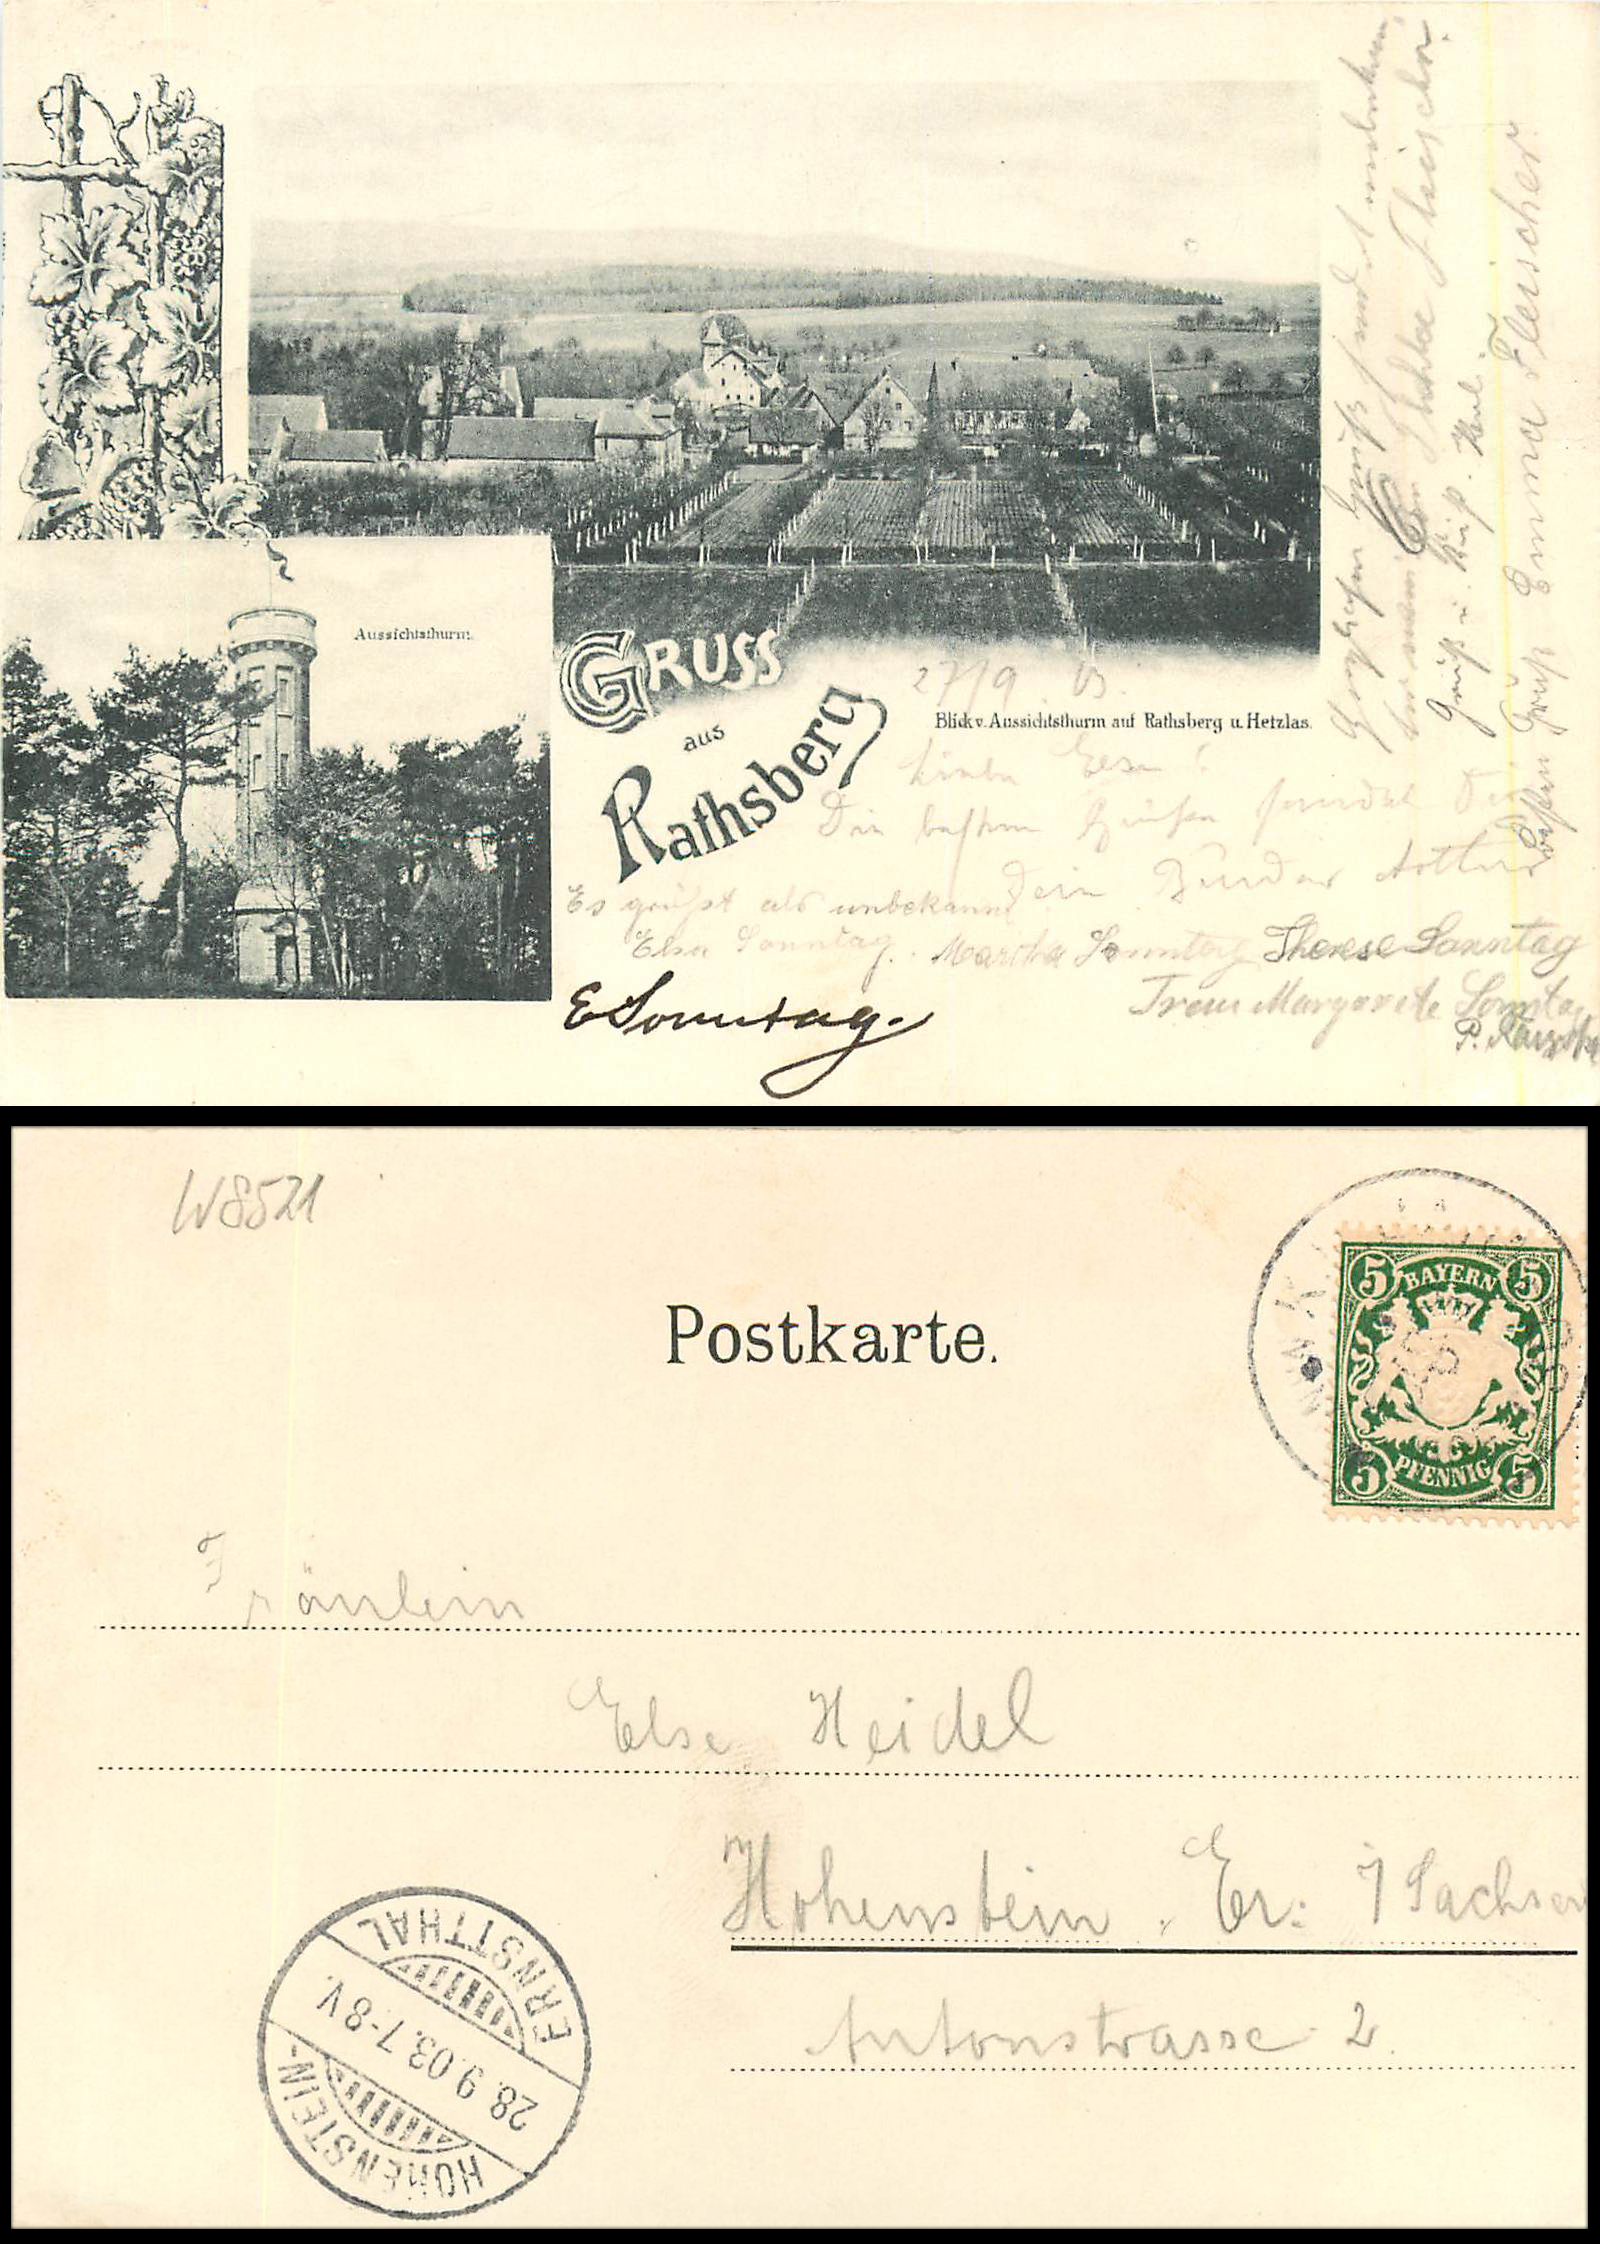 Aussichtsthurm.
GRUSS
aus
Rathsberg
27/9 03.
Blick v. Aussichtsthurm auf Rathsberg u. Hetzlas.
Liebe Else!
Die besten Grüße sendet Dir
Dein Bruder Arthur
Es grüßt als unbekannt
Elsa Sonntag. Martha Sonntag Therese Sonntag
E Sonntag.
Frau Margarete Sonntag
P.
Herzlichen Gruß sendet unbekannt
Fleischer.
Gruß u. Kuß.
Besten Gruß Emma Fleischer
W8521
Postkarte.
BAYERN
5 5
PFENNIG
5 5
Fräulein
Else Heidel
Hohenstein. Er: i Sachsen
Antonstrasse 2.
HOHENSTEIN-
ERNSTTHAL
28.9.03.7-8V.